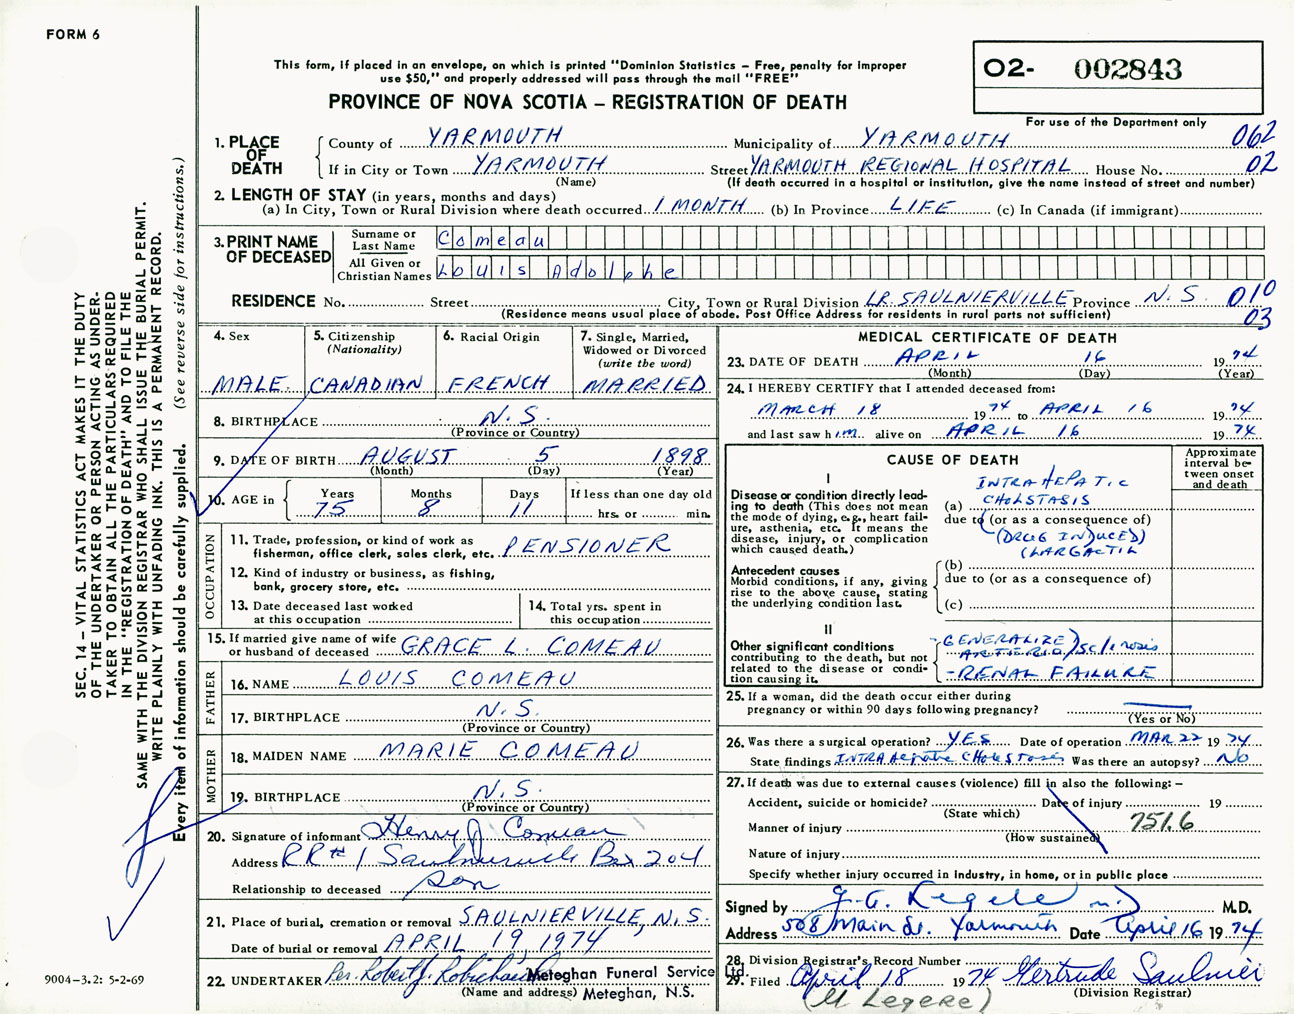 FORM 6
This form, if placed in an envelope, on which is printed "Dominion Statistics – Free, penalty for improper
use $50," and properly addressed will pass through the mail "FREE"
PROVINCE OF NOVA SCOTIA – REGISTRATION OF DEATH
02- 002843
For use of the Department only
SEC. 14 – VITAL STATISTICS ACT MAKES IT THE DUTY
OF THE UNDERTAKER OR PERSON ACTING AS UNDER-
TAKER TO OBTAIN ALL THE PARTICULARS REQUIRED
IN THE "REGISTRATION OF DEATH" AND TO FILE THE
SAME WITH THE DIVISION REGISTRAR WHO SHALL ISSUE THE BURIAL PERMIT.
WRITE PLAINLY WITH UNFADING INK. THIS IS A PERMANENT RECORD.
Every item of information should be carefully supplied. (See reverse side for instructions.)
1. PLACE OF DEATH
County of YARMOUTH Municipality of YARMOUTH 062
If in City or Town YARMOUTH Street YARMOUTH REGIONAL HOSPITAL House No. 02
(Name) (If death occurred in a hospital or institution, give the name instead of street and number)
2. LENGTH OF STAY (in years, months and days)
(a) In City, Town or Rural Division where death occurred 1 MONTH (b) In Province LIFE (c) In Canada (if immigrant)
3. PRINT NAME OF DECEASED
Surname or Last Name Comeau
All Given or Christian Names Louis Adolphe
RESIDENCE No. Street City, Town or Rural Division LR. SAULNIERVILLE Province N.S. 010
(Residence means usual place of abode. Post Office Address for residents in rural parts not sufficient) 03
4. Sex MALE
5. Citizenship (Nationality) CANADIAN
6. Racial Origin FRENCH
7. Single, Married, Widowed or Divorced (write the word) MARRIED
8. BIRTHPLACE N.S.
(Province or Country)
9. DATE OF BIRTH AUGUST 5 1898
(Month) (Day) (Year)
10. AGE in Years 75 Months 8 Days 11 If less than one day old hrs. or min.
OCCUPATION
11. Trade, profession, or kind of work as
fisherman, office clerk, sales clerk, etc. PENSIONER
12. Kind of industry or business, as fishing,
bank, grocery store, etc.
13. Date deceased last worked at this occupation
14. Total yrs. spent in this occupation
15. If married give name of wife
or husband of deceased GRACE L. COMEAU
FATHER
16. NAME LOUIS COMEAU
17. BIRTHPLACE N.S.
(Province or Country)
MOTHER
18. MAIDEN NAME MARIE COMEAU
19. BIRTHPLACE N.S.
(Province or Country)
20. Signature of informant Henry J. Comeau
Address RR# 1 Saulnierville Box 204
Relationship to deceased son
21. Place of burial, cremation or removal SAULNIERVILLE, N.S.
Date of burial or removal APRIL 19, 1974
22. UNDERTAKER Per. Robert J. Robichaud Meteghan Funeral Service Ltd.
(Name and address) Meteghan, N.S.
MEDICAL CERTIFICATE OF DEATH
23. DATE OF DEATH APRIL 16 1974
(Month) (Day) (Year)
24. I HEREBY CERTIFY that I attended deceased from:
MARCH 18 1974 to APRIL 16 1974
and last saw him alive on APRIL 16 1974
CAUSE OF DEATH
Approximate interval be-tween onset and death
I
Disease or condition directly lead-
ing to death (This does not mean
the mode of dying, e.g., heart fail-
ure, asthenia, etc. It means the
disease, injury, or complication
which caused death.)
INTRAHEPATIC
(a) CHOLSTASIS
due to (or as a consequence of)
(DRUG INDUCED)
(LARGACTIL
Antecedent causes
Morbid conditions, if any, giving
rise to the above cause, stating
the underlying condition last.
(b)
due to (or as a consequence of)
(c)
II
Other significant conditions
contributing to the death, but not
related to the disease or condi-
tion causing it.
- GENERALIZE)
ARTERIO)sclerosis
- RENAL FAILURE
25. If a woman, did the death occur either during
pregnancy or within 90 days following pregnancy?
(Yes or No)
26. Was there a surgical operation? YES Date of operation MAR 22 1974
State findings INTRAHepatic CHOLSTASIS Was there an autopsy? No
27. If death was due to external causes (violence) fill in also the following: –
Accident, suicide or homicide? Date of injury 19
(State which)
Manner of injury 751.6
(How sustained)
Nature of injury
Specify whether injury occurred in Industry, in home, or in public place
Signed by M.D.
Address 508 Main St. Yarmouth Date April 16 1974
28. Division Registrar's Record Number
29. Filed April 18 1974 Gertrude Saulnier
(M Legere) (Division Registrar)
9004–3.2: 5-2-69